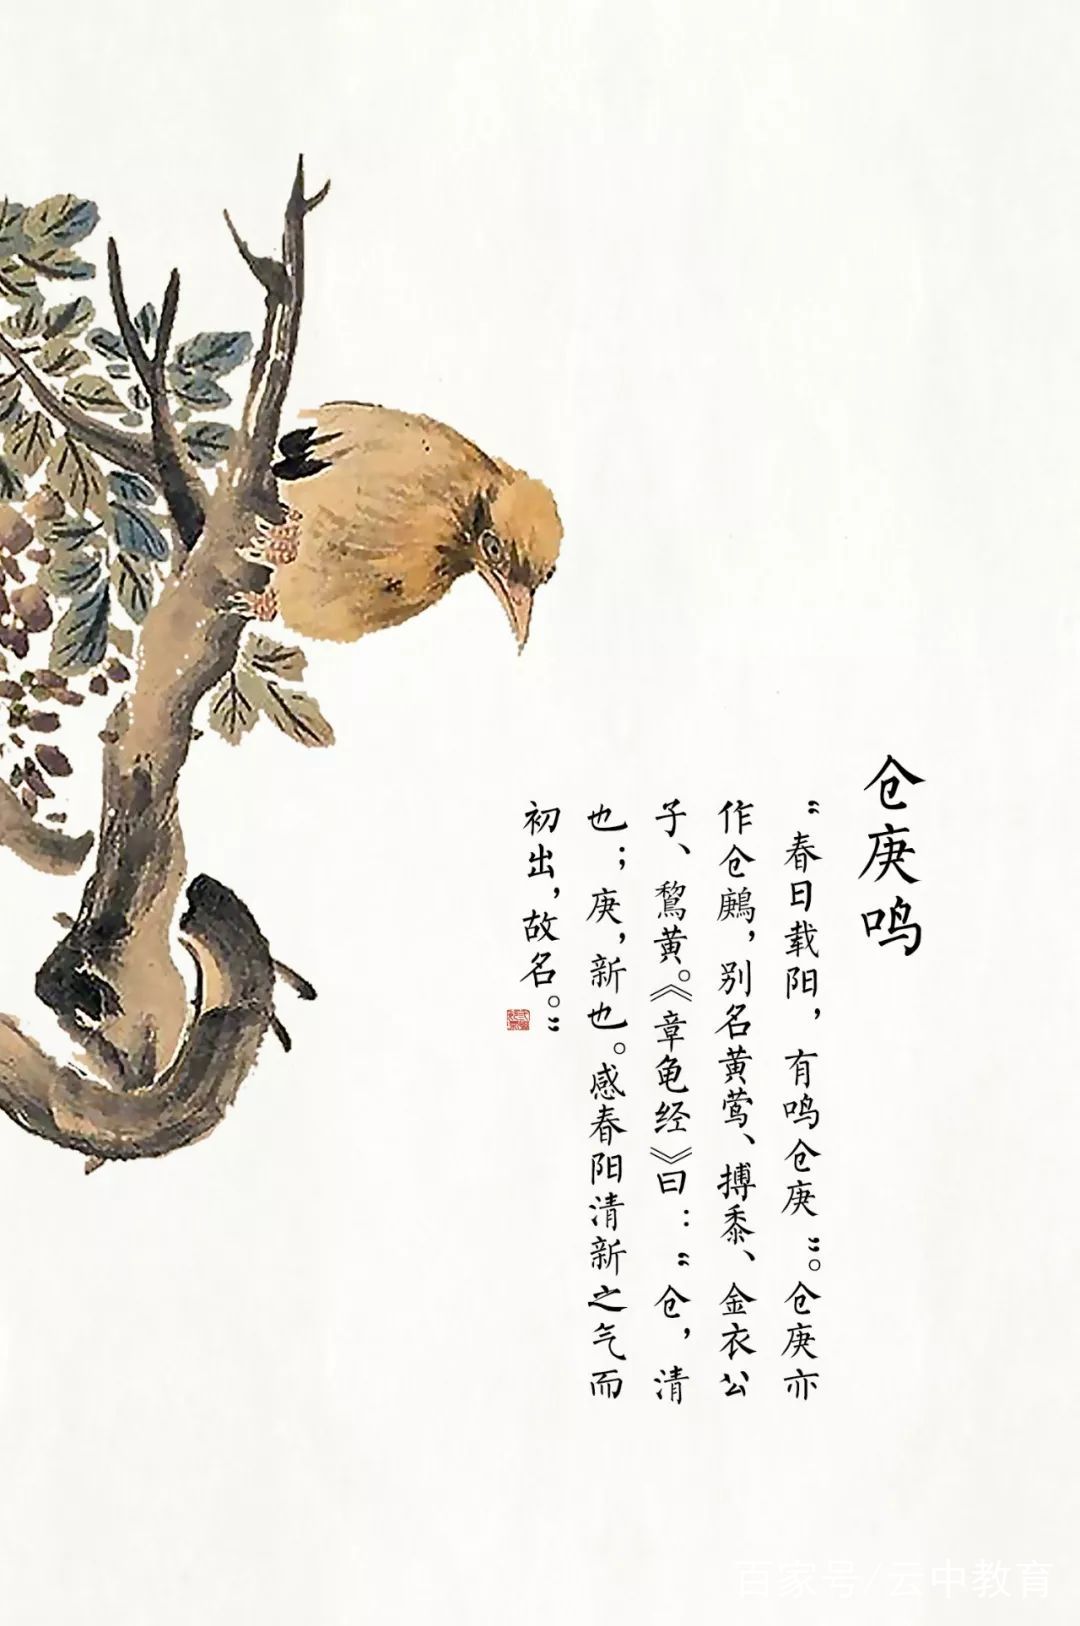 仓庚鸣
“春日载阳，有鸣仓庚”。仓庚亦
作仓鹒，别名黄莺、搏黍、金衣公
子、鵹黄。《章龟经》曰：“仓，清
也；庚，新也。感春阳清新之气而
初出，故名。”
百家号/云中教育